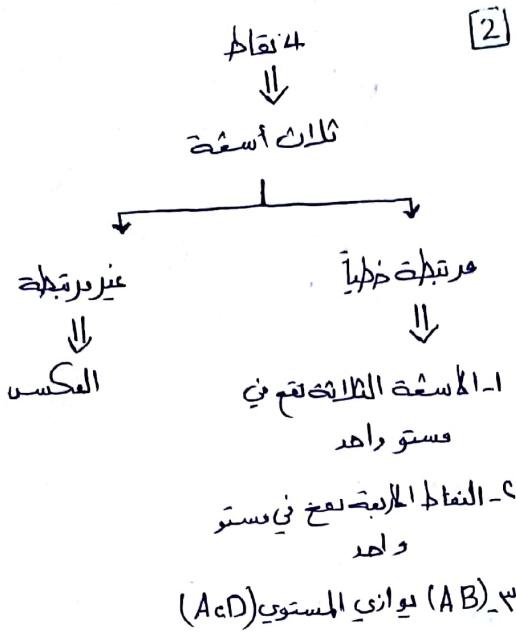 2
4 نقاط
⇓
ثلاث أشعة
مرتبطة خطياً
⇓
1- الأشعة الثلاثة تقع في
مستو واحد
2- النقاط الأربعة تقع في مستو
واحد
3- (AB) يوازي المستوي (ACD)
غير مرتبطة
⇓
العكس